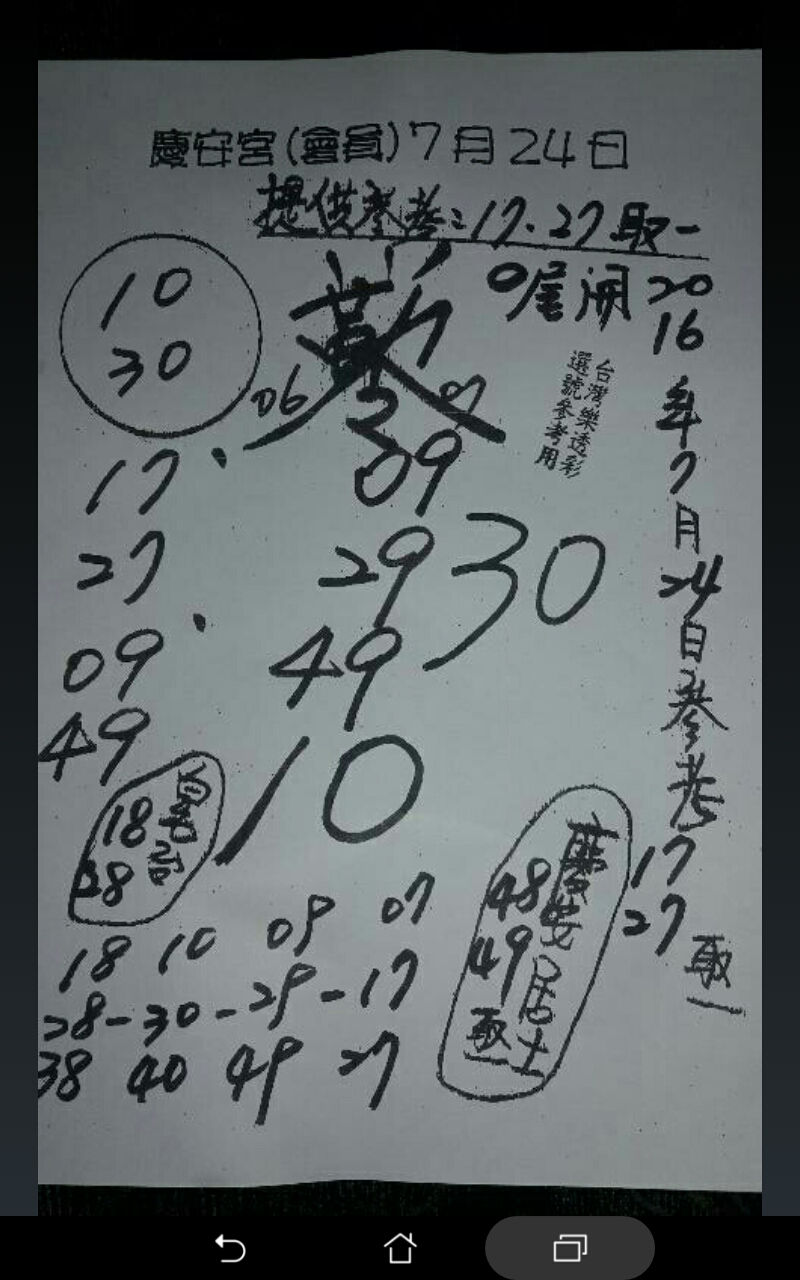 慶安宮(會員)7月24日
提供參考:17.27取一
0尾開 2016年7月24日參考
17
27
取一
台灣樂透彩
選號參考用
10
30
06
07
09
29
49
30
10
17.
27
09
49
18
38
慶安居士
48
49
取一
18 10 09 07
28-30-29-17
38 40 49 27